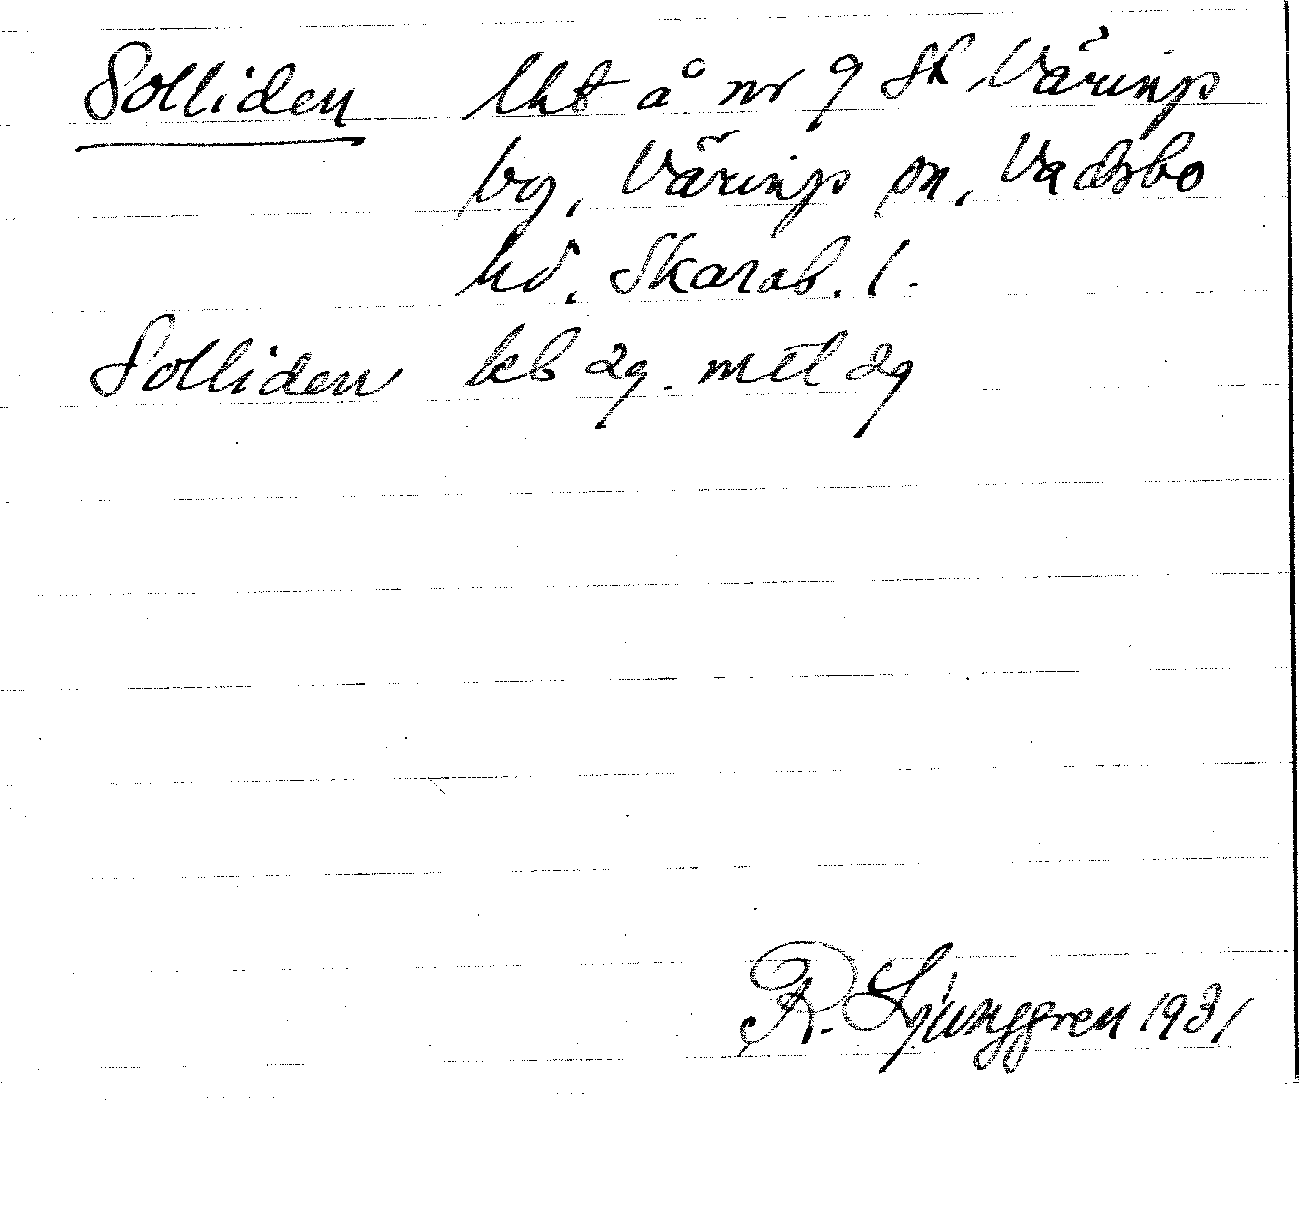 Solliden lht å nr 9 Sk Värings
by, Värings sn, Vadsbo
hd, Skarab. l.
Solliden kb 29. mtl 29
R. Ljunggren 1931